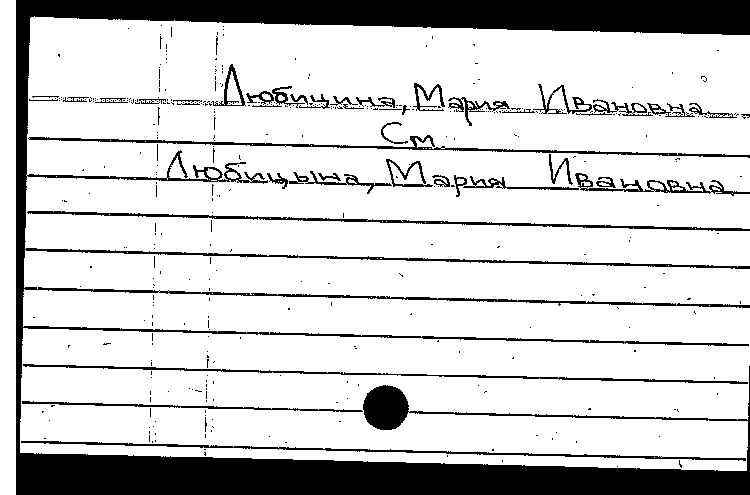 Любицина, Мария Ивановна
См.
Любицына, Мария Ивановна